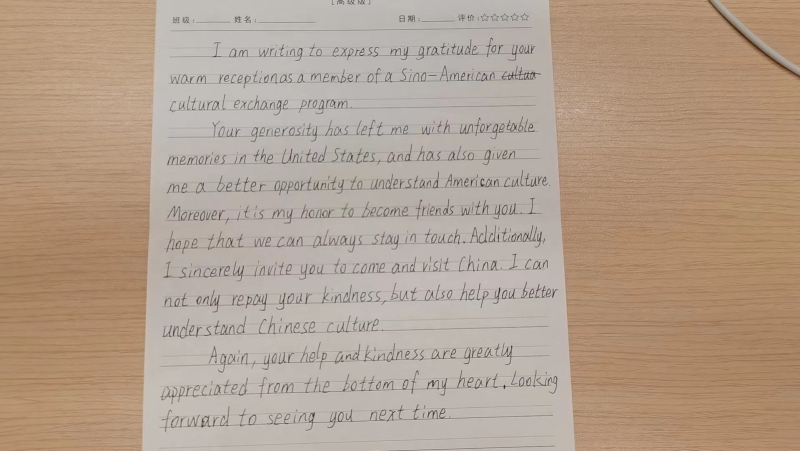 [高级版]
班级: 姓名: 日期: 评价:☆☆☆☆☆
I am writing to express my gratitude for your
warm reception as a member of a Sino-American cultua
cultural exchange program.
Your generosity has left me with unforgetable
memories in the United States, and has also given
me a better opportunity to understand American culture.
Moreover, it is my honor to become friends with you. I
hope that we can always stay in touch. Additionally,
I sincerely invite you to come and visit China. I can
not only repay your kindness, but also help you better
understand Chinese culture.
Again, your help and kindness are greatly
appreciated from the bottom of my heart. Looking
forward to seeing you next time.